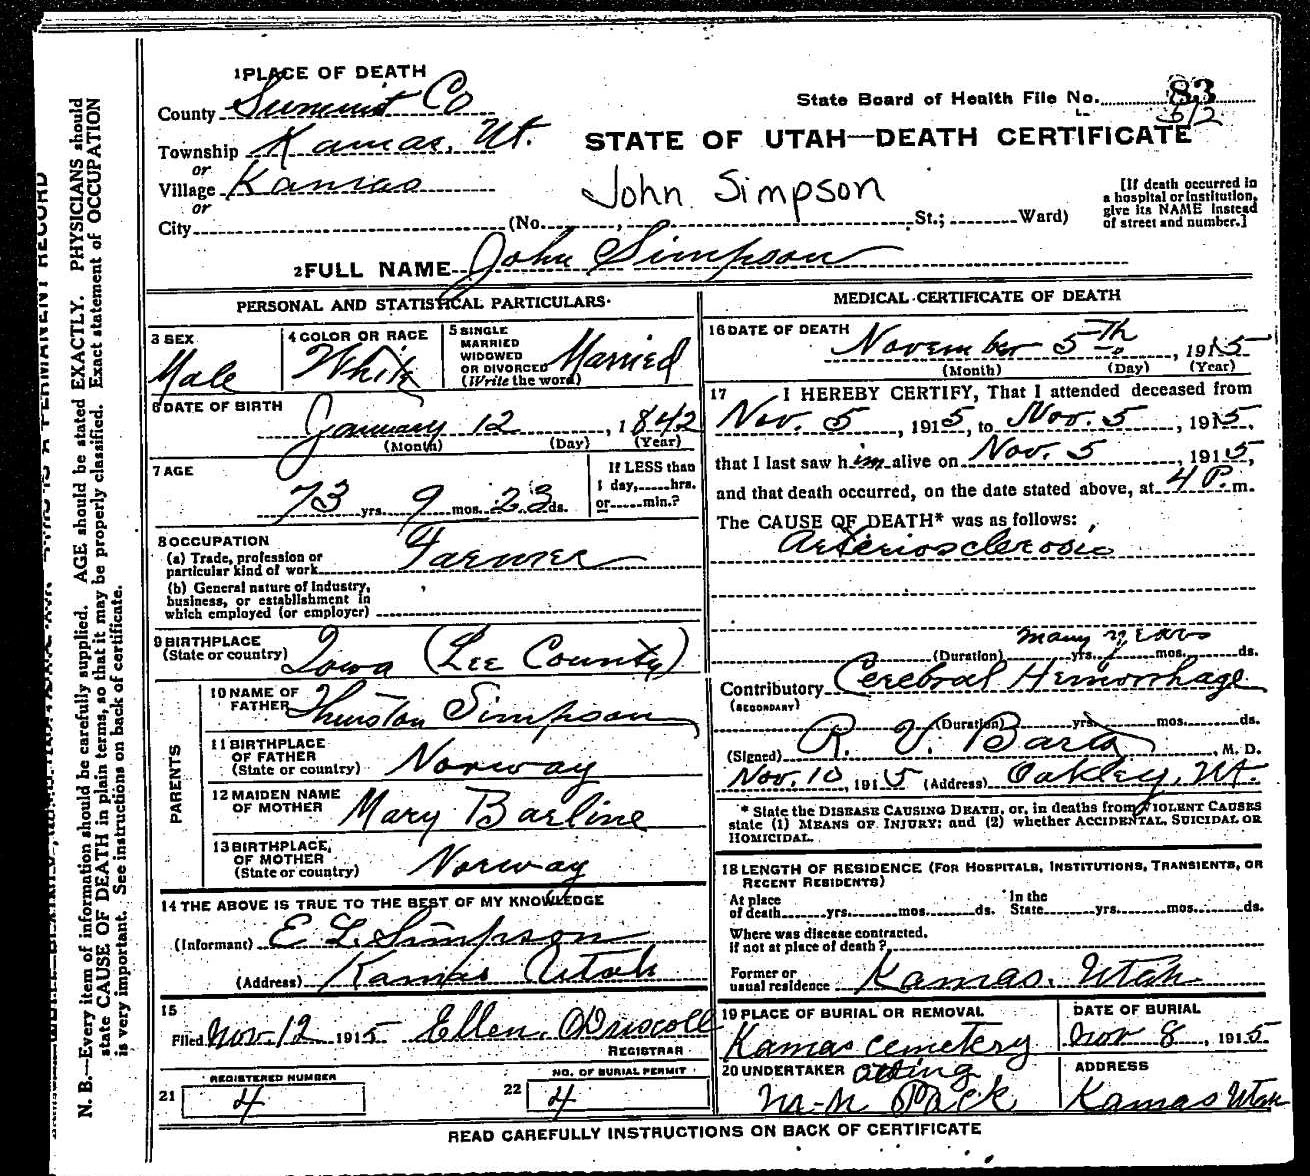 1 PLACE OF DEATH
County Summit Co
State Board of Health File No. 83
612
Township Kamas, Ut.
or
Village Kamas
or
City
STATE OF UTAH—DEATH CERTIFICATE
John Simpson
(No. , St.; Ward)
[If death occurred in
a hospital or institution,
give its NAME instead
of street and number.]
2 FULL NAME John Simpson
PERSONAL AND STATISTICAL PARTICULARS
3 SEX
Male
4 COLOR OR RACE
White
5 SINGLE
MARRIED
WIDOWED
OR DIVORCED
(Write the word)
Married
6 DATE OF BIRTH
January 12, 1842
(Month) (Day) (Year)
7 AGE
73 yrs. 9 mos. 23 ds.
If LESS than
1 day, hrs.
or min.?
8 OCCUPATION
(a) Trade, profession or
particular kind of work Farmer
(b) General nature of industry,
business, or establishment in
which employed (or employer)
9 BIRTHPLACE
(State or country) Iowa (Lee County)
PARENTS
10 NAME OF
FATHER Thurston Simpson
11 BIRTHPLACE
OF FATHER
(State or country) Norway
12 MAIDEN NAME
OF MOTHER Mary Barline
13 BIRTHPLACE,
OF MOTHER
(State or country) Norway
14 THE ABOVE IS TRUE TO THE BEST OF MY KNOWLEDGE
(Informant) E L Simpson
(Address) Kamas Utah
15
Filed Nov. 12 1915 Ellen O'Driscoll
REGISTRAR
21 REGISTERED NUMBER
4
22 NO. OF BURIAL PERMIT
4
MEDICAL CERTIFICATE OF DEATH
16 DATE OF DEATH
November 5th, 1915
(Month) (Day) (Year)
17 I HEREBY CERTIFY, That I attended deceased from
Nov. 5, 1915, to Nov. 5, 1915,
that I last saw him alive on Nov. 5, 1915,
and that death occurred, on the date stated above, at 4 P. m.
The CAUSE OF DEATH* was as follows:
Arteriosclerosis
many years
(Duration) yrs. mos. ds.
Contributory Cerebral Hemorrhage
(SECONDARY)
(Duration) yrs. mos. ds.
(Signed) R. V. Barta, M. D.
Nov. 10, 1915 (Address) Oakley, Ut.
* State the DISEASE CAUSING DEATH, or, in deaths from VIOLENT CAUSES
state (1) MEANS OF INJURY; and (2) whether ACCIDENTAL, SUICIDAL OR
HOMICIDAL.
18 LENGTH OF RESIDENCE (FOR HOSPITALS, INSTITUTIONS, TRANSIENTS, OR
RECENT RESIDENTS)
At place
of death yrs. mos. ds.
In the
State yrs. mos. ds.
Where was disease contracted,
if not at place of death?
Former or
usual residence Kamas, Utah
19 PLACE OF BURIAL OR REMOVAL
Kamas cemetery
DATE OF BURIAL
Nov 8, 1915
20 UNDERTAKER acting
M-N Pack
ADDRESS
Kamas Utah
READ CAREFULLY INSTRUCTIONS ON BACK OF CERTIFICATE
N. B.—Every item of information should be carefully supplied. AGE should be stated EXACTLY. PHYSICIANS should
state CAUSE OF DEATH in plain terms, so that it may be properly classified. Exact statement of OCCUPATION
is very important. See instructions on back of certificate.
THIS IS A PERMANENT RECORD